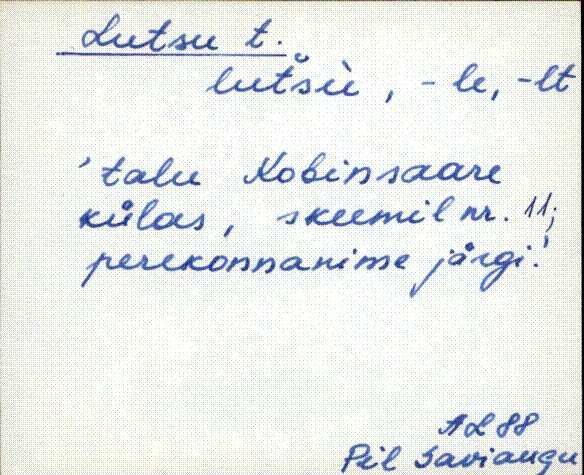 Lutsu t.
lutšù, -le, -lt
'talu Kobinsaare
külas, skeemil nr. 11;
perekonnanime järgi.'
AL 88
Pil Saviangu